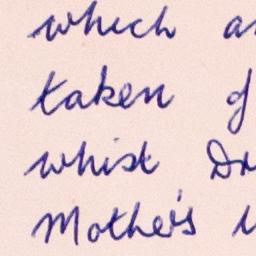 which
taken of
whist Dr
Mother's